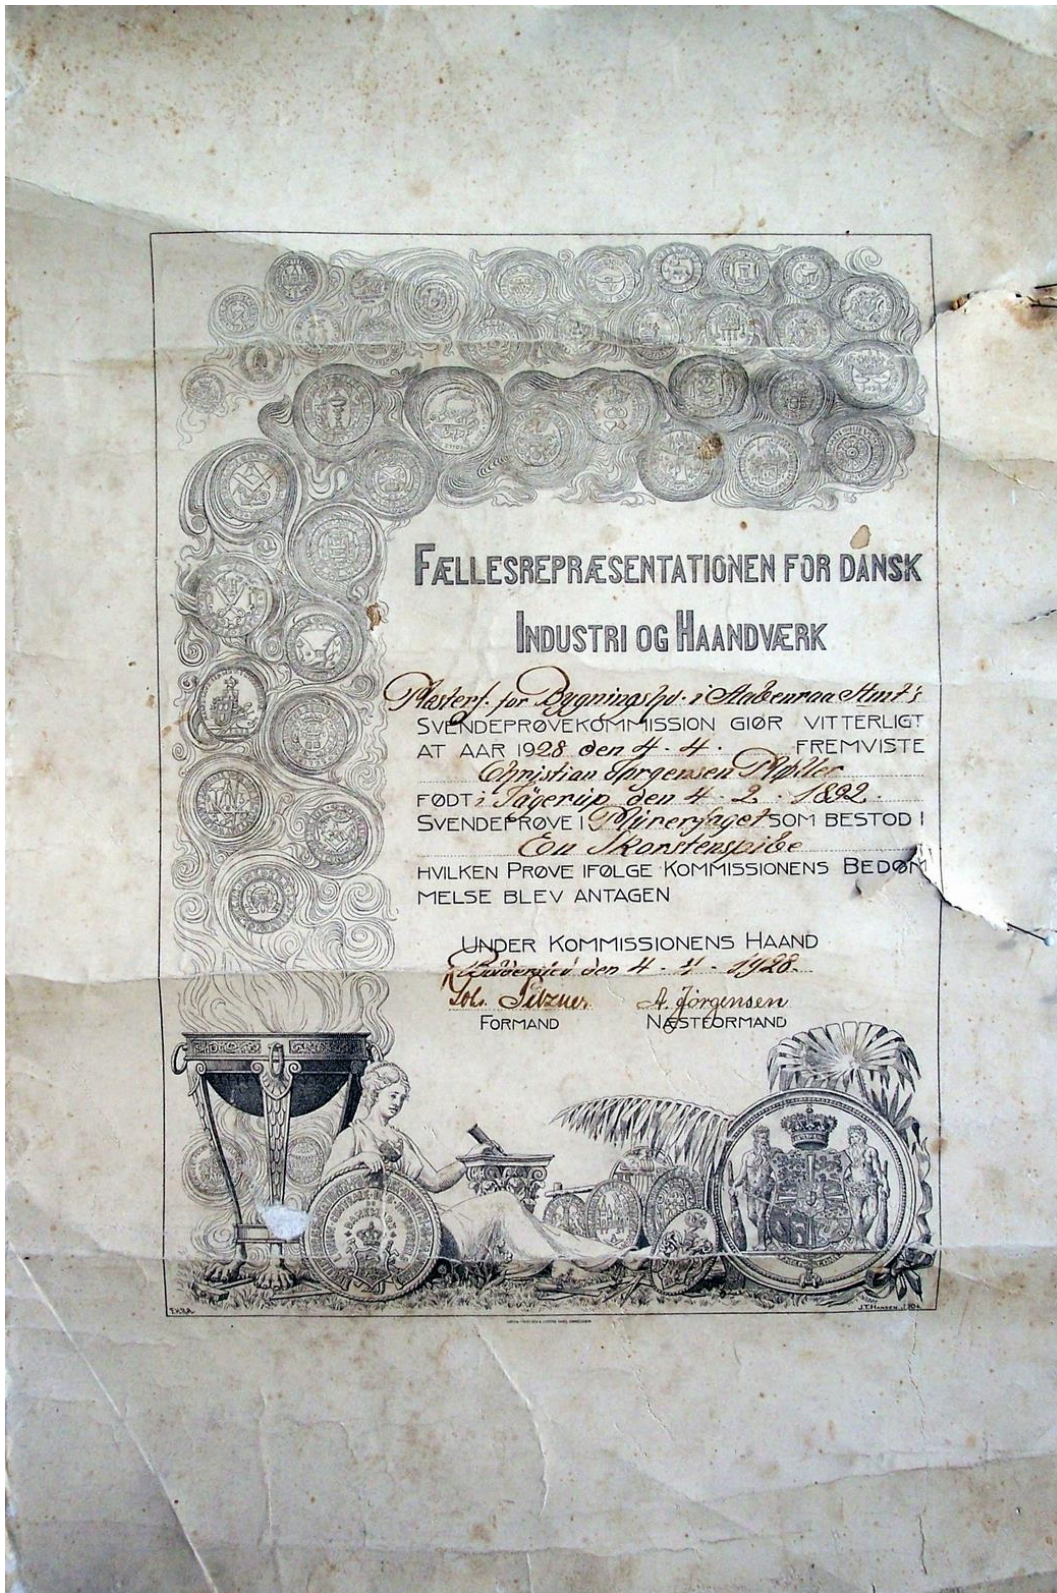 FÆLLESREPRÆSENTATIONEN FOR DANSK
INDUSTRI OG HAANDVÆRK
Mesterf. for Bygningshd. i Aabenraa Amt's
SVENDEPRØVEKOMMISSION GIØR VITTERLIGT
AT AAR 1928 den 4. 4. FREMVISTE
Christian Jørgensen Møller
FØDT i Jägerup den 4. 2. 1892.
SVENDEPRØVE I Murerfaget SOM BESTOD I
En Skorstenspibe
HVILKEN PRØVE IFØLGE KOMMISSIONENS BEDØM
MELSE BLEV ANTAGEN
UNDER KOMMISSIONENS HAAND
den 4. 4. 1928.
A. Jörgensen
FORMAND NÆSTFORMAND
J.T. HANSEN